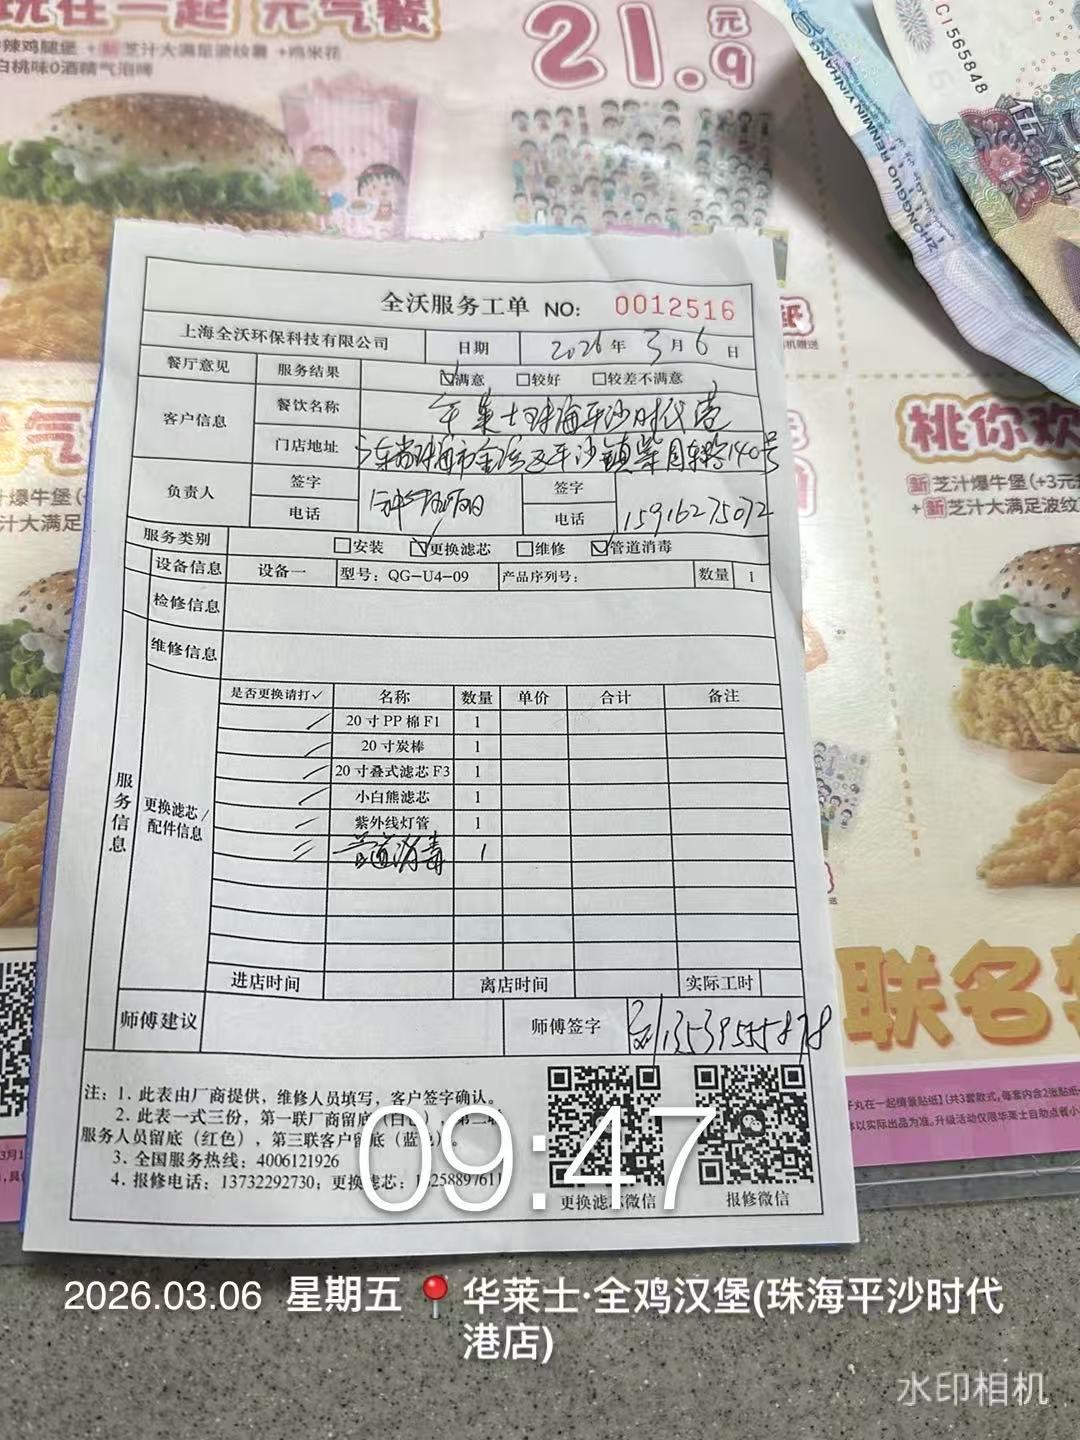 玩在一起 元气餐
21.9元
辣鸡腿堡 + 新 芝汁大满足波纹薯 + 鸡米花
白桃味0酒精气泡啤
CI565848
伍
圆
ZHONGGUO RENMIN YINHANG
全沃服务工单 NO: 0012516
上海全沃环保科技有限公司 日期 2026年3月6日
餐厅意见 服务结果 ☑满意 □较好 □较差不满意
客户信息 餐饮名称 华莱士珠海平沙时代港
门店地址 广东省珠海市金湾区平沙镇 140号
负责人 签字 签字
电话 电话 15916275072
服务类别 □安装 ☑更换滤芯 □维修 ☑管道消毒
设备信息 设备一 型号:QG-U4-09 产品序列号: 数量 1
检修信息
维修信息
服务信息
更换滤芯/配件信息
是否更换请打✓ 名称 数量 单价 合计 备注
20寸PP棉F1 1
20寸炭棒 1
20寸叠式滤芯F3 1
小白熊滤芯 1
紫外线灯管 1
管道消毒 1
进店时间 离店时间 实际工时
师傅建议 师傅签字 刘13539555878
注:1. 此表由厂商提供,维修人员填写,客户签字确认。
2. 此表一式三份,第一联厂商留底(白色),第二联
服务人员留底(红色),第三联客户留底(蓝色)。
3. 全国服务热线:4006121926
4. 报修电话:13732292730;更换滤芯:
更换滤芯微信 报修微信
桃你欢
新 芝汁爆牛堡(+3元
+ 新 芝汁大满足波纹
联名
09:47
2026.03.06 星期五 华莱士·全鸡汉堡(珠海平沙时代
港店)
水印相机